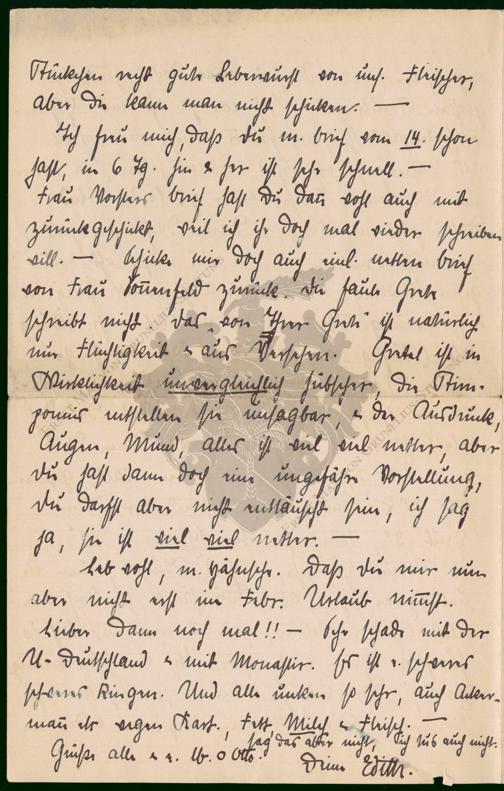 Stückchen recht gute Leberwurst von uns. Fleischer,
aber die kann man nicht schicken. —
Ich freu mich, daß Du m. Brief vom 14. schon
hast, in 6 Tg. hin & her ist sehr schnell. —
Frau Vorsters Brief hast Du dann wohl auch mit
zurückgeschickt, weil ich ihr doch mal wieder schreiben
will. — Schicke mir doch auch einl. netten Brief
von Frau Sonnenfeld zurück. Die faule Grete
schreibt nicht. Das „von Ihrer Grete" ist natürlich
nur Flüchtigkeit & aus Versehen. Gretel ist in
Wirklichkeit unvergleichlich hübscher, die Stirn-
ponnis entstellen sie unsagbar, & der Ausdruck,
Augen, Mund, alles ist viel viel netter, aber
Du hast dann doch eine ungefähre Vorstellung,
Du darfst aber nicht enttäuscht sein, ich sag
ja, sie ist viel viel netter. —
Leb wohl, m. Daß Du mir nun
aber nicht erst im Febr. Urlaub nimmst.
Lieber dann noch mal!! — Sehr schade mit der
U-Deutschland & mit Monastir. Es ist e. schweres
schweres Ringen. Und alle unken so sehr, auch Acker-
mann etc wegen Kart., Fett, Milch & Fleisch. —
sag das aber nicht, ich tus auch nicht.
Grüße alle & e. lb. Otto.
Deine Edith.